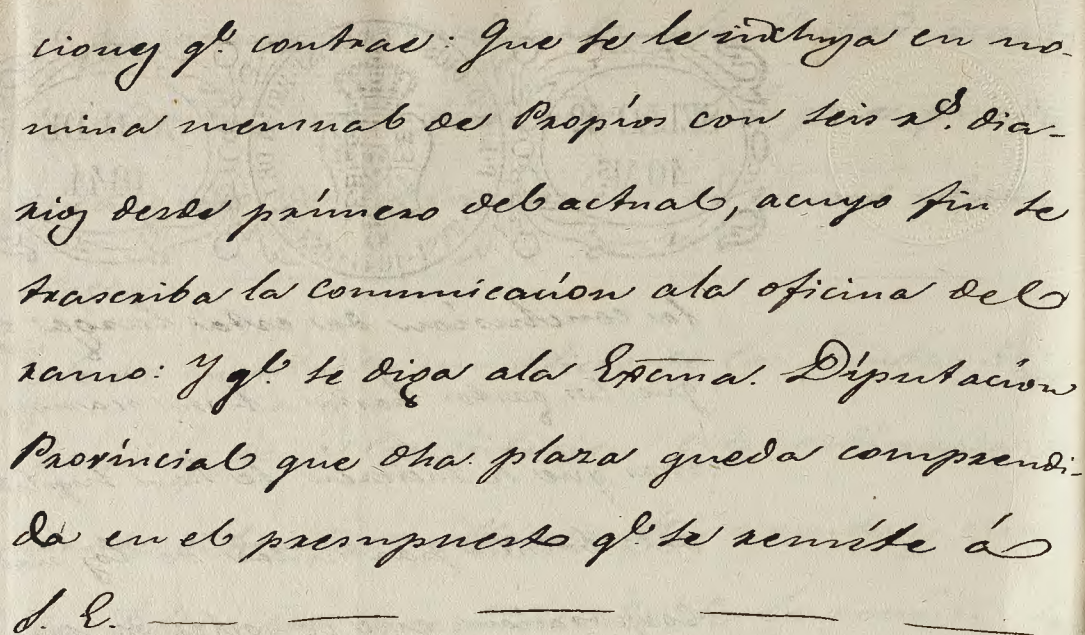 ciones qᵉ. contrae: Que se le incluya en no-
mina mensual de Propios con seis rˢ. dia-
rios desde primero del actual, acuyo fin se
trascriba la comunicacion ala oficina del
ramo: Y qᵉ. se diga ala Excma. Diputacion
Provincial que dha. plaza queda comprendi-
da en el presupuesto qᵉ. se remite á
S. E.